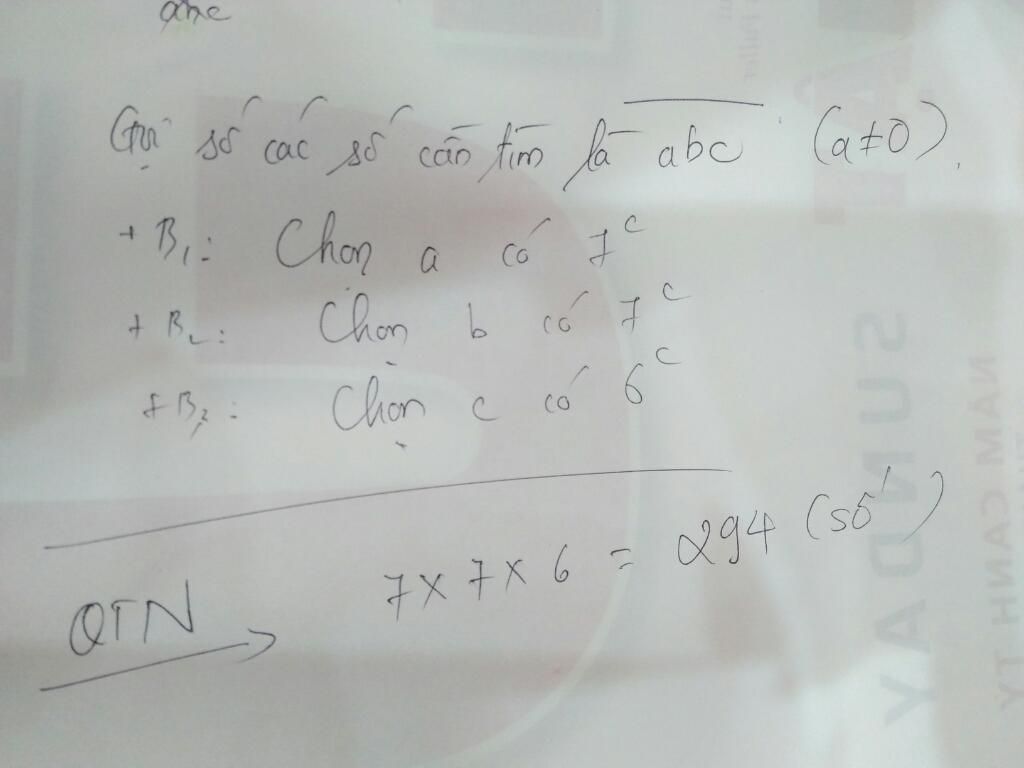 abc
Gọi số các số cần tìm là abc (a≠0).
+ B1: Chọn a có 7c
+ B2: Chọn b có 7c
+ B3: Chọn c có 6c
QTN 7 x 7 x 6 = 294 (số)
SUNDAY
NAM CANH TY